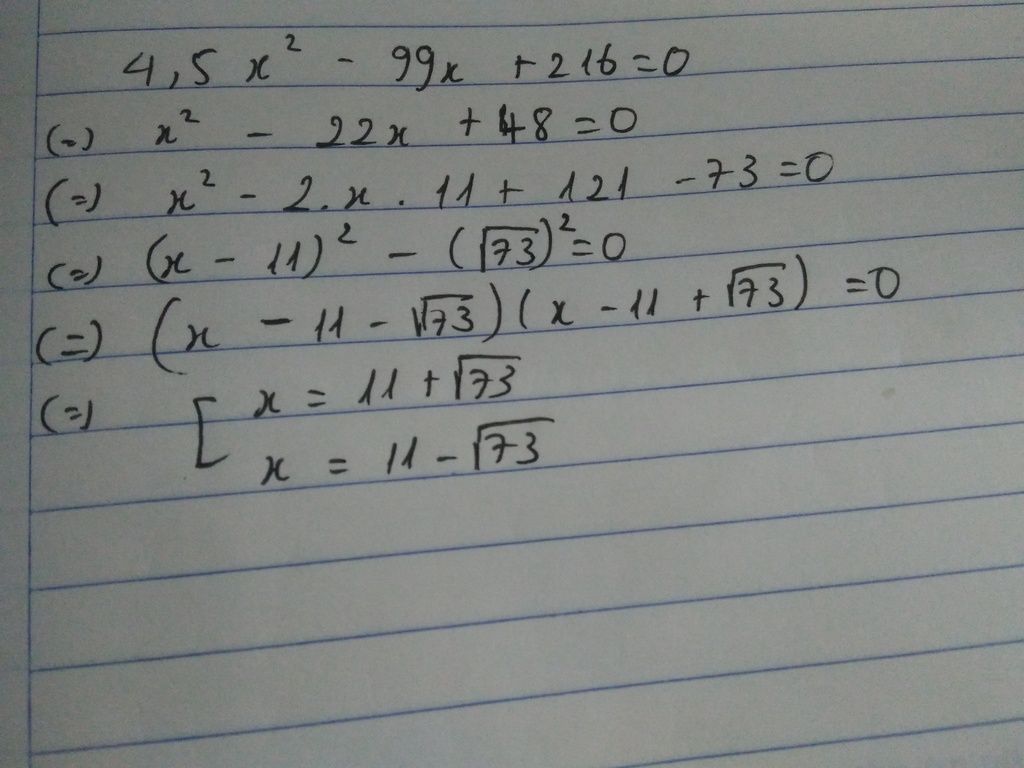 4,5 x² - 99x + 216 = 0
(-) x² - 22x + 48 = 0
(=) x² - 2.x.11 + 121 - 73 = 0
(=) (x - 11)² - (√73)² = 0
(=) (x - 11 - √73)(x - 11 + √73) = 0
(=) [ x = 11 + √73
x = 11 - √73